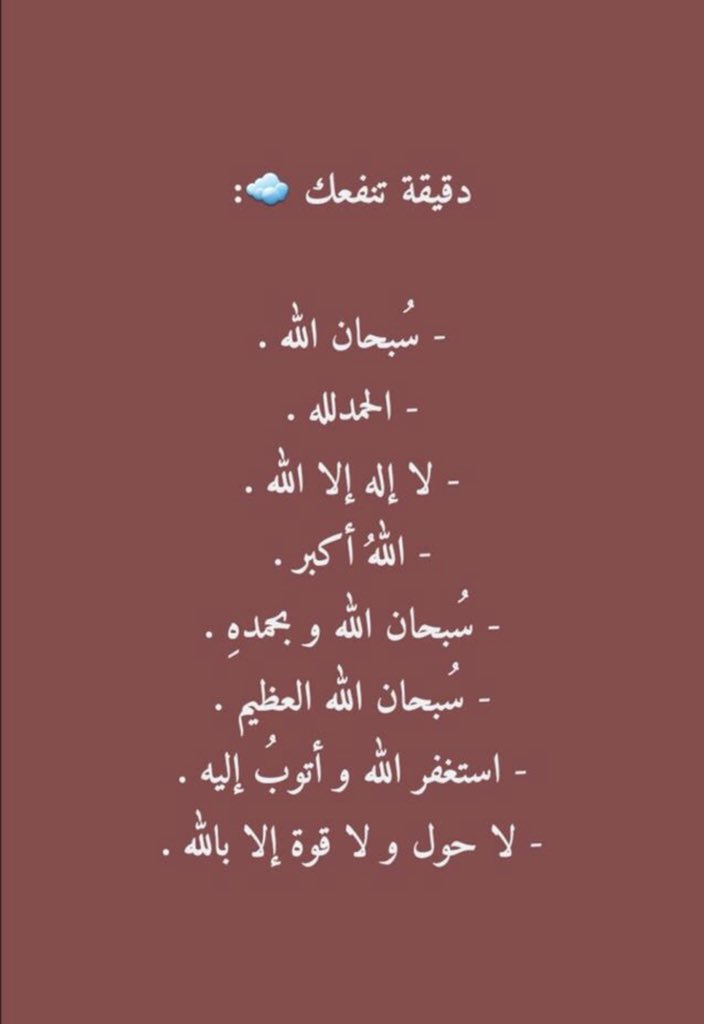 دقيقة تنفعك ☁️:
- سُبحان الله .
- الحمدلله .
- لا إله إلا الله .
- اللهُ أكبر .
- سُبحان الله و بحمدهِ .
- سُبحان الله العظيم .
- استغفر الله و أتوبُ إليه .
- لا حول و لا قوة إلا بالله .